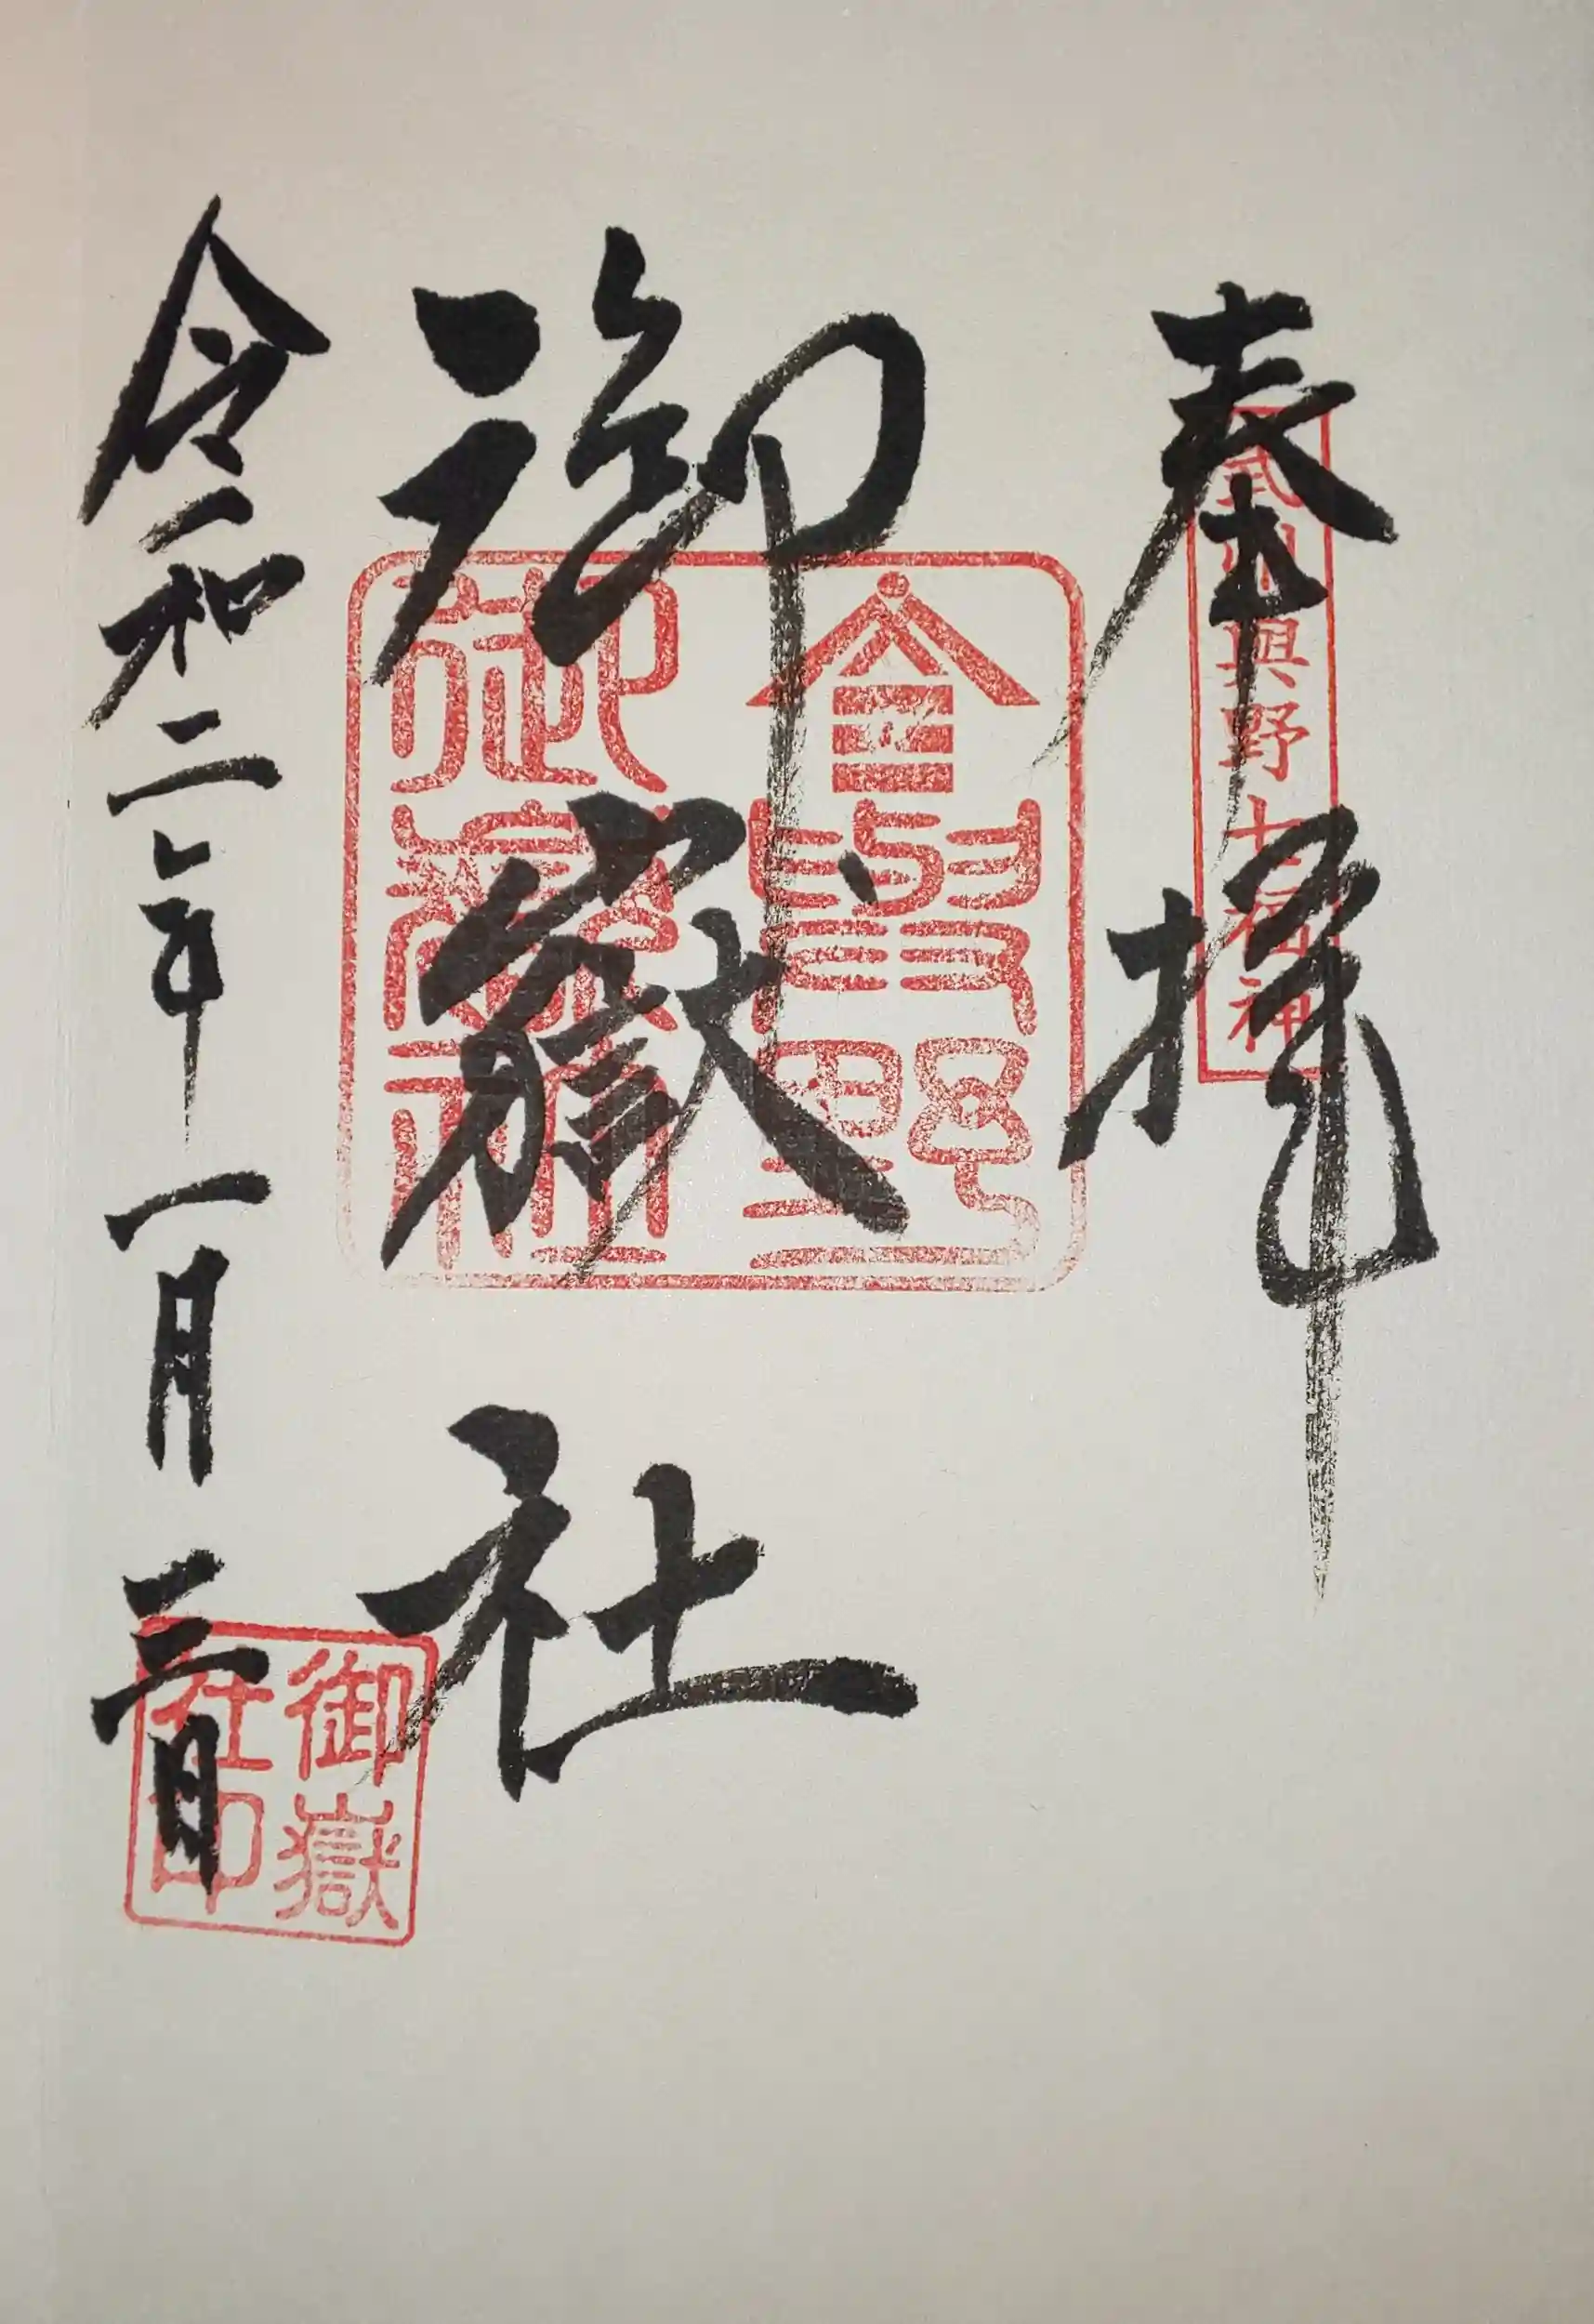 奉拝
武州與野七福神
御嶽社
會與野
御嶽社
令和二年一月三日
御嶽
社印